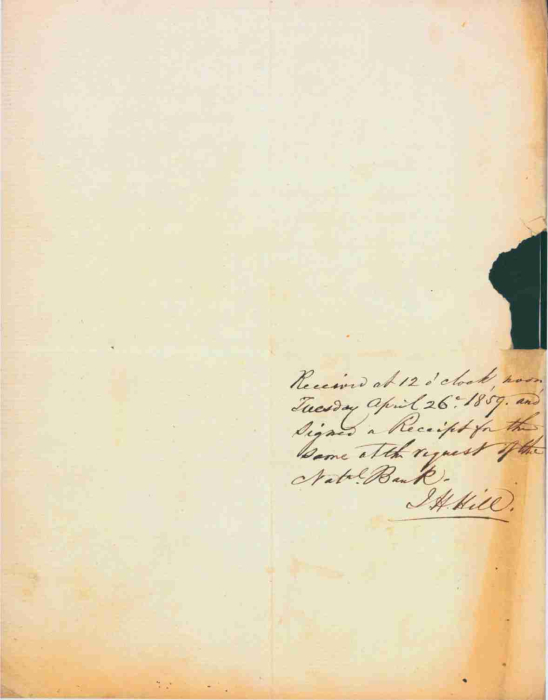 Received at 12 o'clock, noon
Tuesday April 26th 1859. and
Signed a Receipt for the
same at the request of the
Natal Bank.
J H Hill.